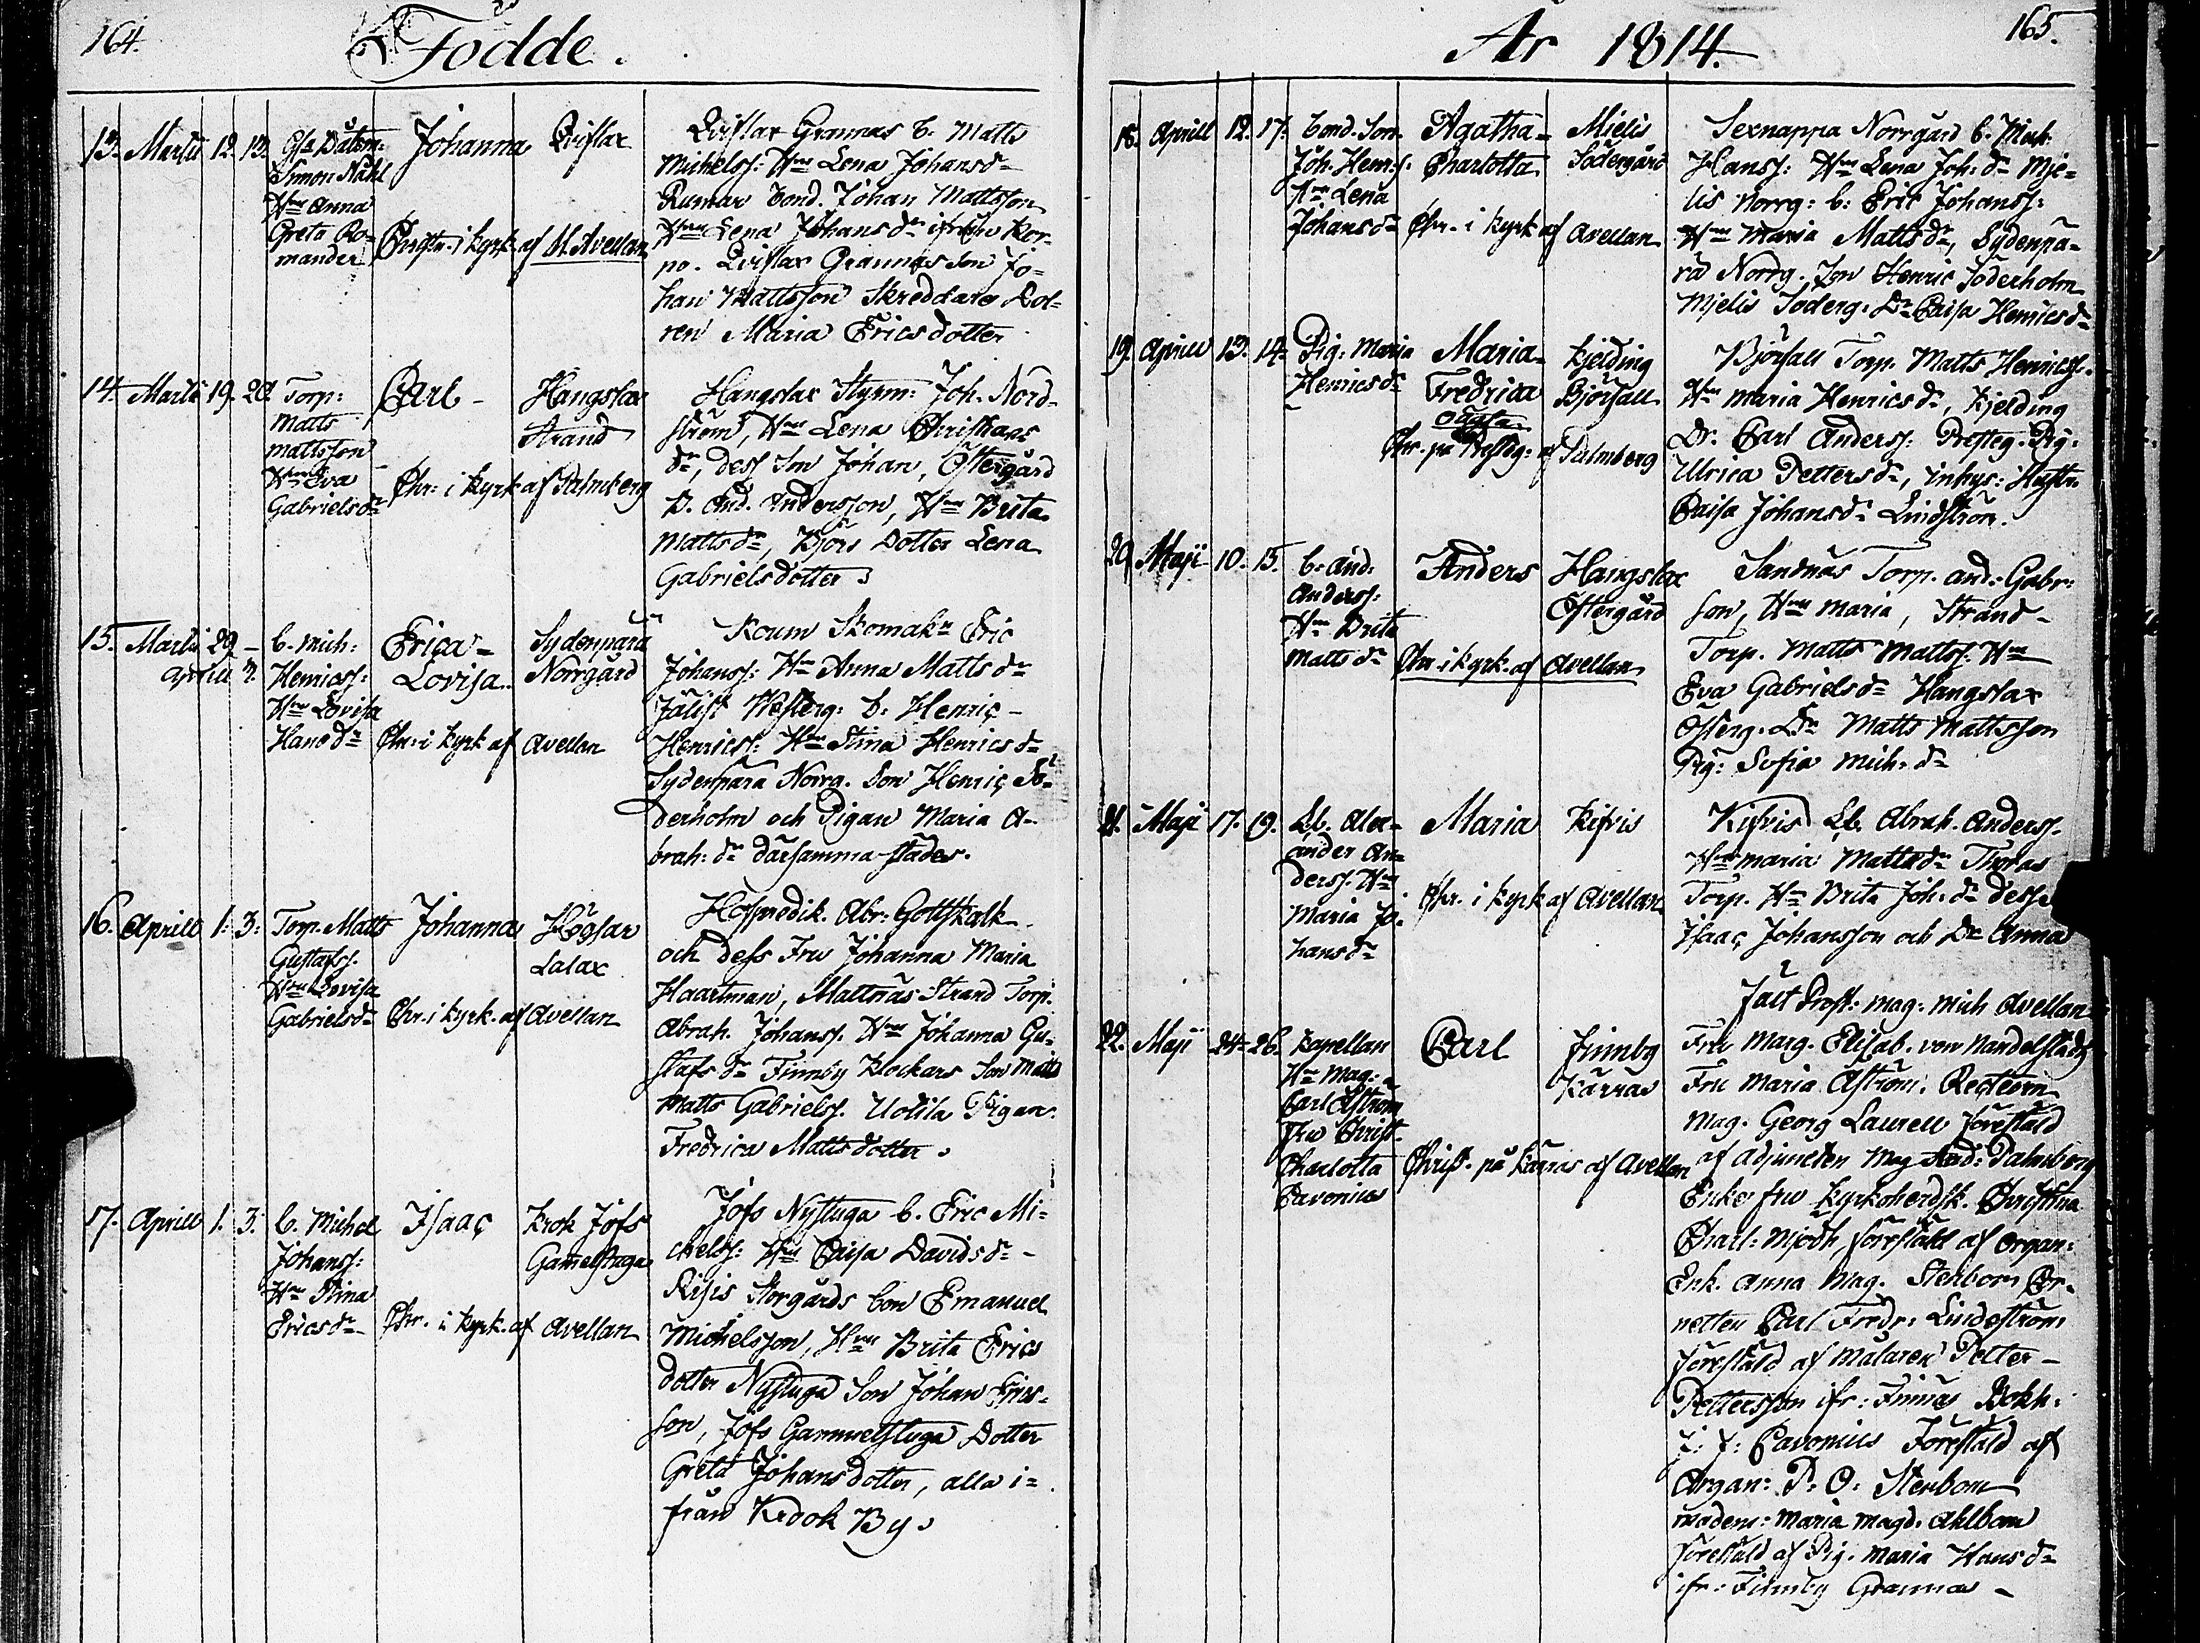 164.
Födde.
13. Martii 12. 13. Gfa Båtsm:
Simon Ståhl
Hru Anna
Greta Ro-
mander
Johanna
Qviflax
Christn. i kyrk. af M. Avellan
Qviflax Grannas b. Matts
Michelss: Hru Lena Johansdr
Rumar bond. Johan Mattsson
Hru Lena Johansdr ifrån Kor-
po. Qviflax Grannas Son Jo-
han Mattsson Skreddare
ren Maria Ericsdotter
14. Martii 19. 20. Torp:
Matts
Mattsson
Hru Eva
Gabrielsdr
Carl
Hangslax
Strand
Chr: i kyrk af Palmberg
Hangslax Styrm: Joh. Nord-
ström, Hru Lena Christians
dr, dess Son Johan, Östergård
B. And. Andersson, Hru Brita
Mattsdr, Björs Dotter Lena
Gabrielsdotter.
15. Martii 29. -
Aprill 3.
b. Mich:
Henricss:
Hru Lovisa
Hansdr
Erica
Lovisa
Sydenpärä
Norrgård
Chr. i kyrk af Avellan
Koum Skomakr Eric
Johanss: Hru Anna Mattsdr
Jälist Westerg: b. Henric
Henricss: Hru Stina Henricsdr
Sydenpärä Norrg. Son Henric Sö-
derholm och Pigan Maria A-
brah: dr därsammastädes.
16. Aprill 1. 3. Torp. Matts
Gustafss.
Hru Lovisa
Gabrielsdr
Johanna
Högsar
Lalax
Chr. i kyrk. af Avellan
Hofpredik. Abr: Gottskalk
och dess Fru Johanna Maria
Haartman, Mattnäs Strand Torp.
Abrah. Johanss. Hru Johanna Gu-
stafsdr Finnby Klockars Son Matts
Matts Gabrielss. Uotila Pigan
Fredrica Mattsdotter.
17. Aprill 1. 3. b. Michel
Johanss:
Hru Stina
Ericsdr
Isaac
Krok Jofs
Gamelstuga
Chr. i kyrk. af Avellan
Jofs Nystuga b. Eric Mi-
chelss: Hru Caisa Davidsdr
Risis Storgårds bon Emanuel
Michelsson, Hru Brita Erics
dotter Nystuga Son Johan Erics-
son, Jofs Gammelstuga Dotter
Greta Johansdotter, alla i-
från Krook By.
År 1814.
165.
18. Aprill 12. 17. bond. Son
Joh. Henrss.
Hru Lena
Johansdr
Agatha
Charlotta
Mielis
Södergård
Chr. i kyrk af Avellan
Sexnappa Norrgård b. Mich.
Hanss: Hru Lena Joh: dr Mje-
lis Norrg: b: Eric Johanss:
Hru Maria Mattsdr, Sydenpä-
rä Norrg. Son Henric Söderholm
Mjelis Söderg. Dr Caisa Henricsdr
19. Aprill 13. 14. Pig: Maria
Henricsdr
Maria
Fredrica
oägta
Kjelding
Björsall
Chr. på Prestg: af Palmberg
Björsall Torp. Matts Henricss.
Hru Maria Henricsdr, Kjelding
Dr. Carl Anderss: Presteg. Pig.
Ulrica Pettersdr, inhys: Hustr.
Caisa Johansdr Lindström.
20. Maji 10. 15. b. And:
Anderss:
Hru Brita
Mattsdr
Anders
Hangslax
Östergård
Chr. i kyrk. af Avellan
Sandnäs Torp. And: Gabr:
son, Hru Maria, Strand
Torp. Matts Mattss: Hru
Eva Gabrielsdr Hangslax
Österg. Dr Matts Mattsson
Pig: Sofia Mich. dr
21. Maji 17. 19. Lb. Alex-
ander An-
derss. Hru
Maria Jo-
hansdr
Maria
Kifvis
Chr. i kyrk af Avellan
Kifvis Lb. Abrah. Anderss.
Hru Maria Mattsdr Thoras
Torp. Hru Brita Joh: dr dess
Isaac Johansson och Dr Anna
22. Maji 24. 26. Kapellan
Hr Mag:
Carl Åström
Fru Christ.
Charlotta
Pavonius
Carl
Finnby
Kärnas
Christ. på Kärnas af Avellan
Fält Prost: Mag: Mich Avellan
Fru Marg. Elisab. von Nandelstadh
Fru Maria Åström. Rectorn
Mag. Georg Laurell föreställd
af Adjuncten Mag And: Palmberg
Enkefru Kyrkoherdsk. Christina
Charl: Mjödh, föreställd af Organ:
Enk. Anna Mag. Stenbom, Cor-
netten Carl Fredr: Lindeström
föreställd af Målaren Petter
Pettersson ifr: Finnäs Bokh:
J: J: Pavonius Föreställd af
Organ: P: O: Stenbom
Maria Magd. Ahlbom
föreställd af Pig. Maria Hansdr
ifr: Finnby Grannas